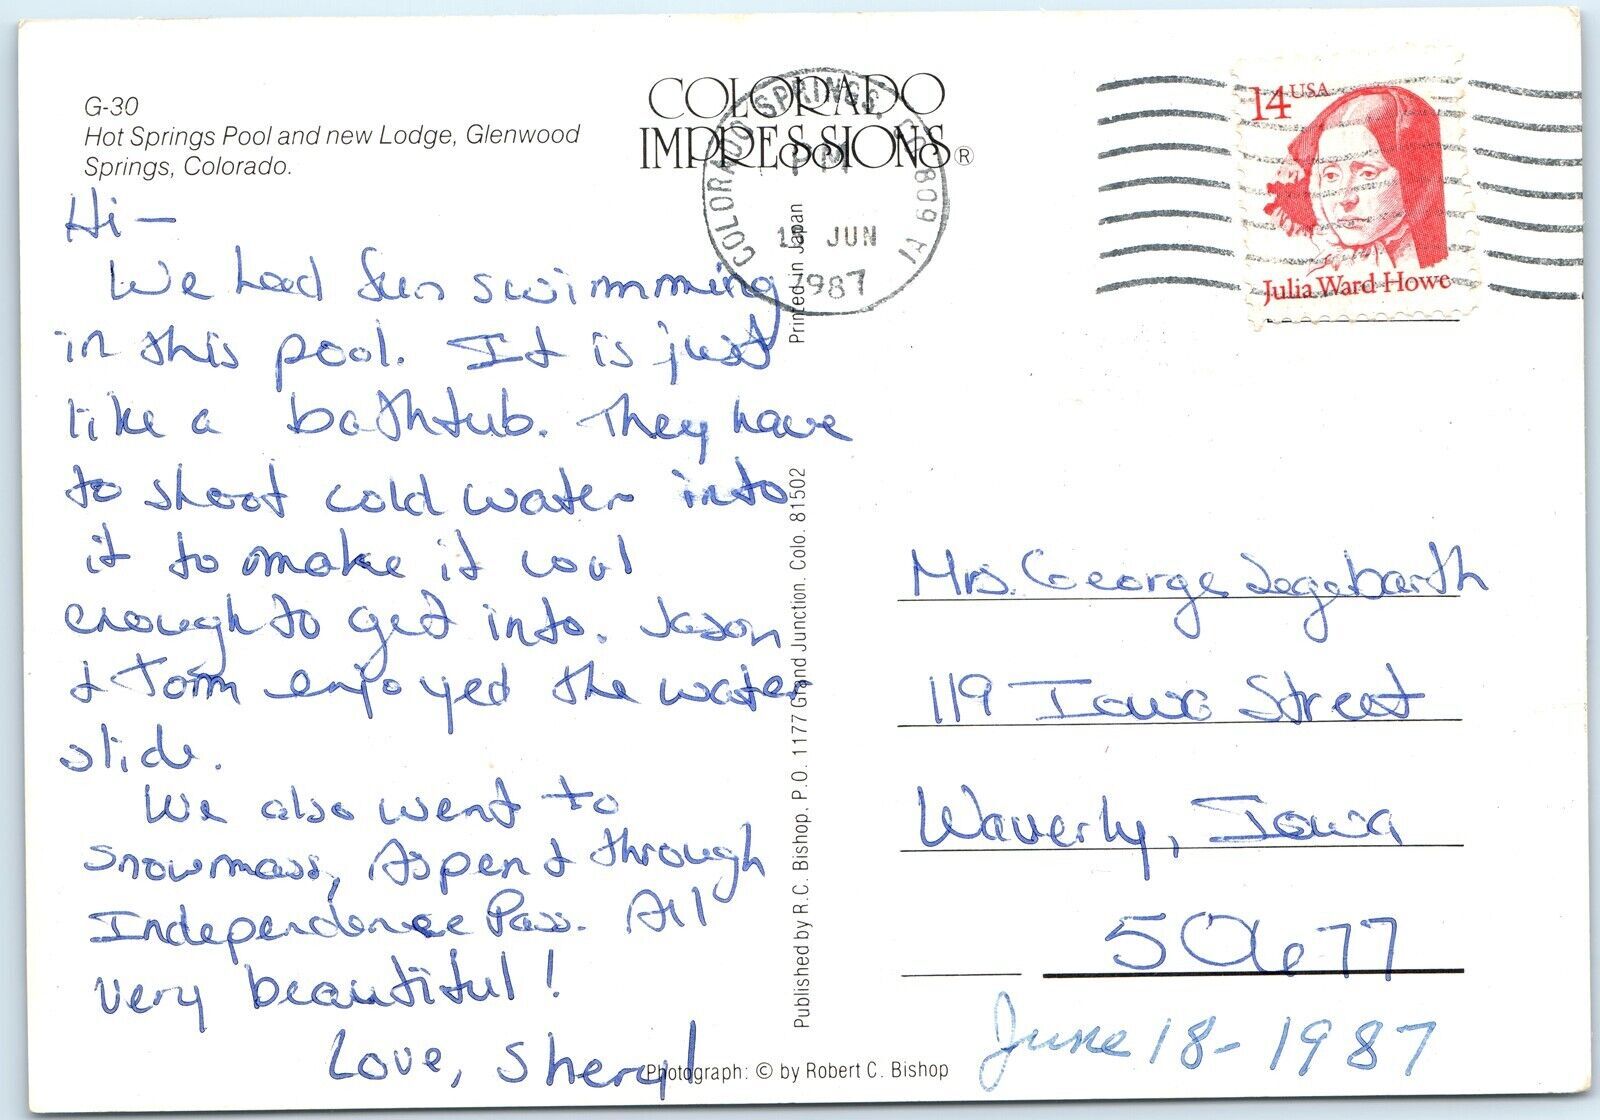 G-30
Hot Springs Pool and new Lodge, Glenwood
Springs, Colorado.
COLORADO
IMPRESSIONS®
COLORADO SPRINGS, CO 809
PM
JUN
1987
14 USA
Julia Ward Howe
Hi —
We had fun swimming
in this pool. It is just
like a bathtub. They have
to shoot cold water into
it to make it cool
enough to get into. Jason
& Tom enjoyed the water
slide.
We also went to
Snowmass, Aspen & through
Independence Pass. All
very beautiful!
Love, Sheryl
Printed in Japan
Published by R.C. Bishop. P.O. 1177 Grand Junction, Colo. 81502
Photograph: © by Robert C. Bishop
Mrs. George Segebarth
119 Iowa Street
Waverly, Iowa
50677
June 18 - 1987